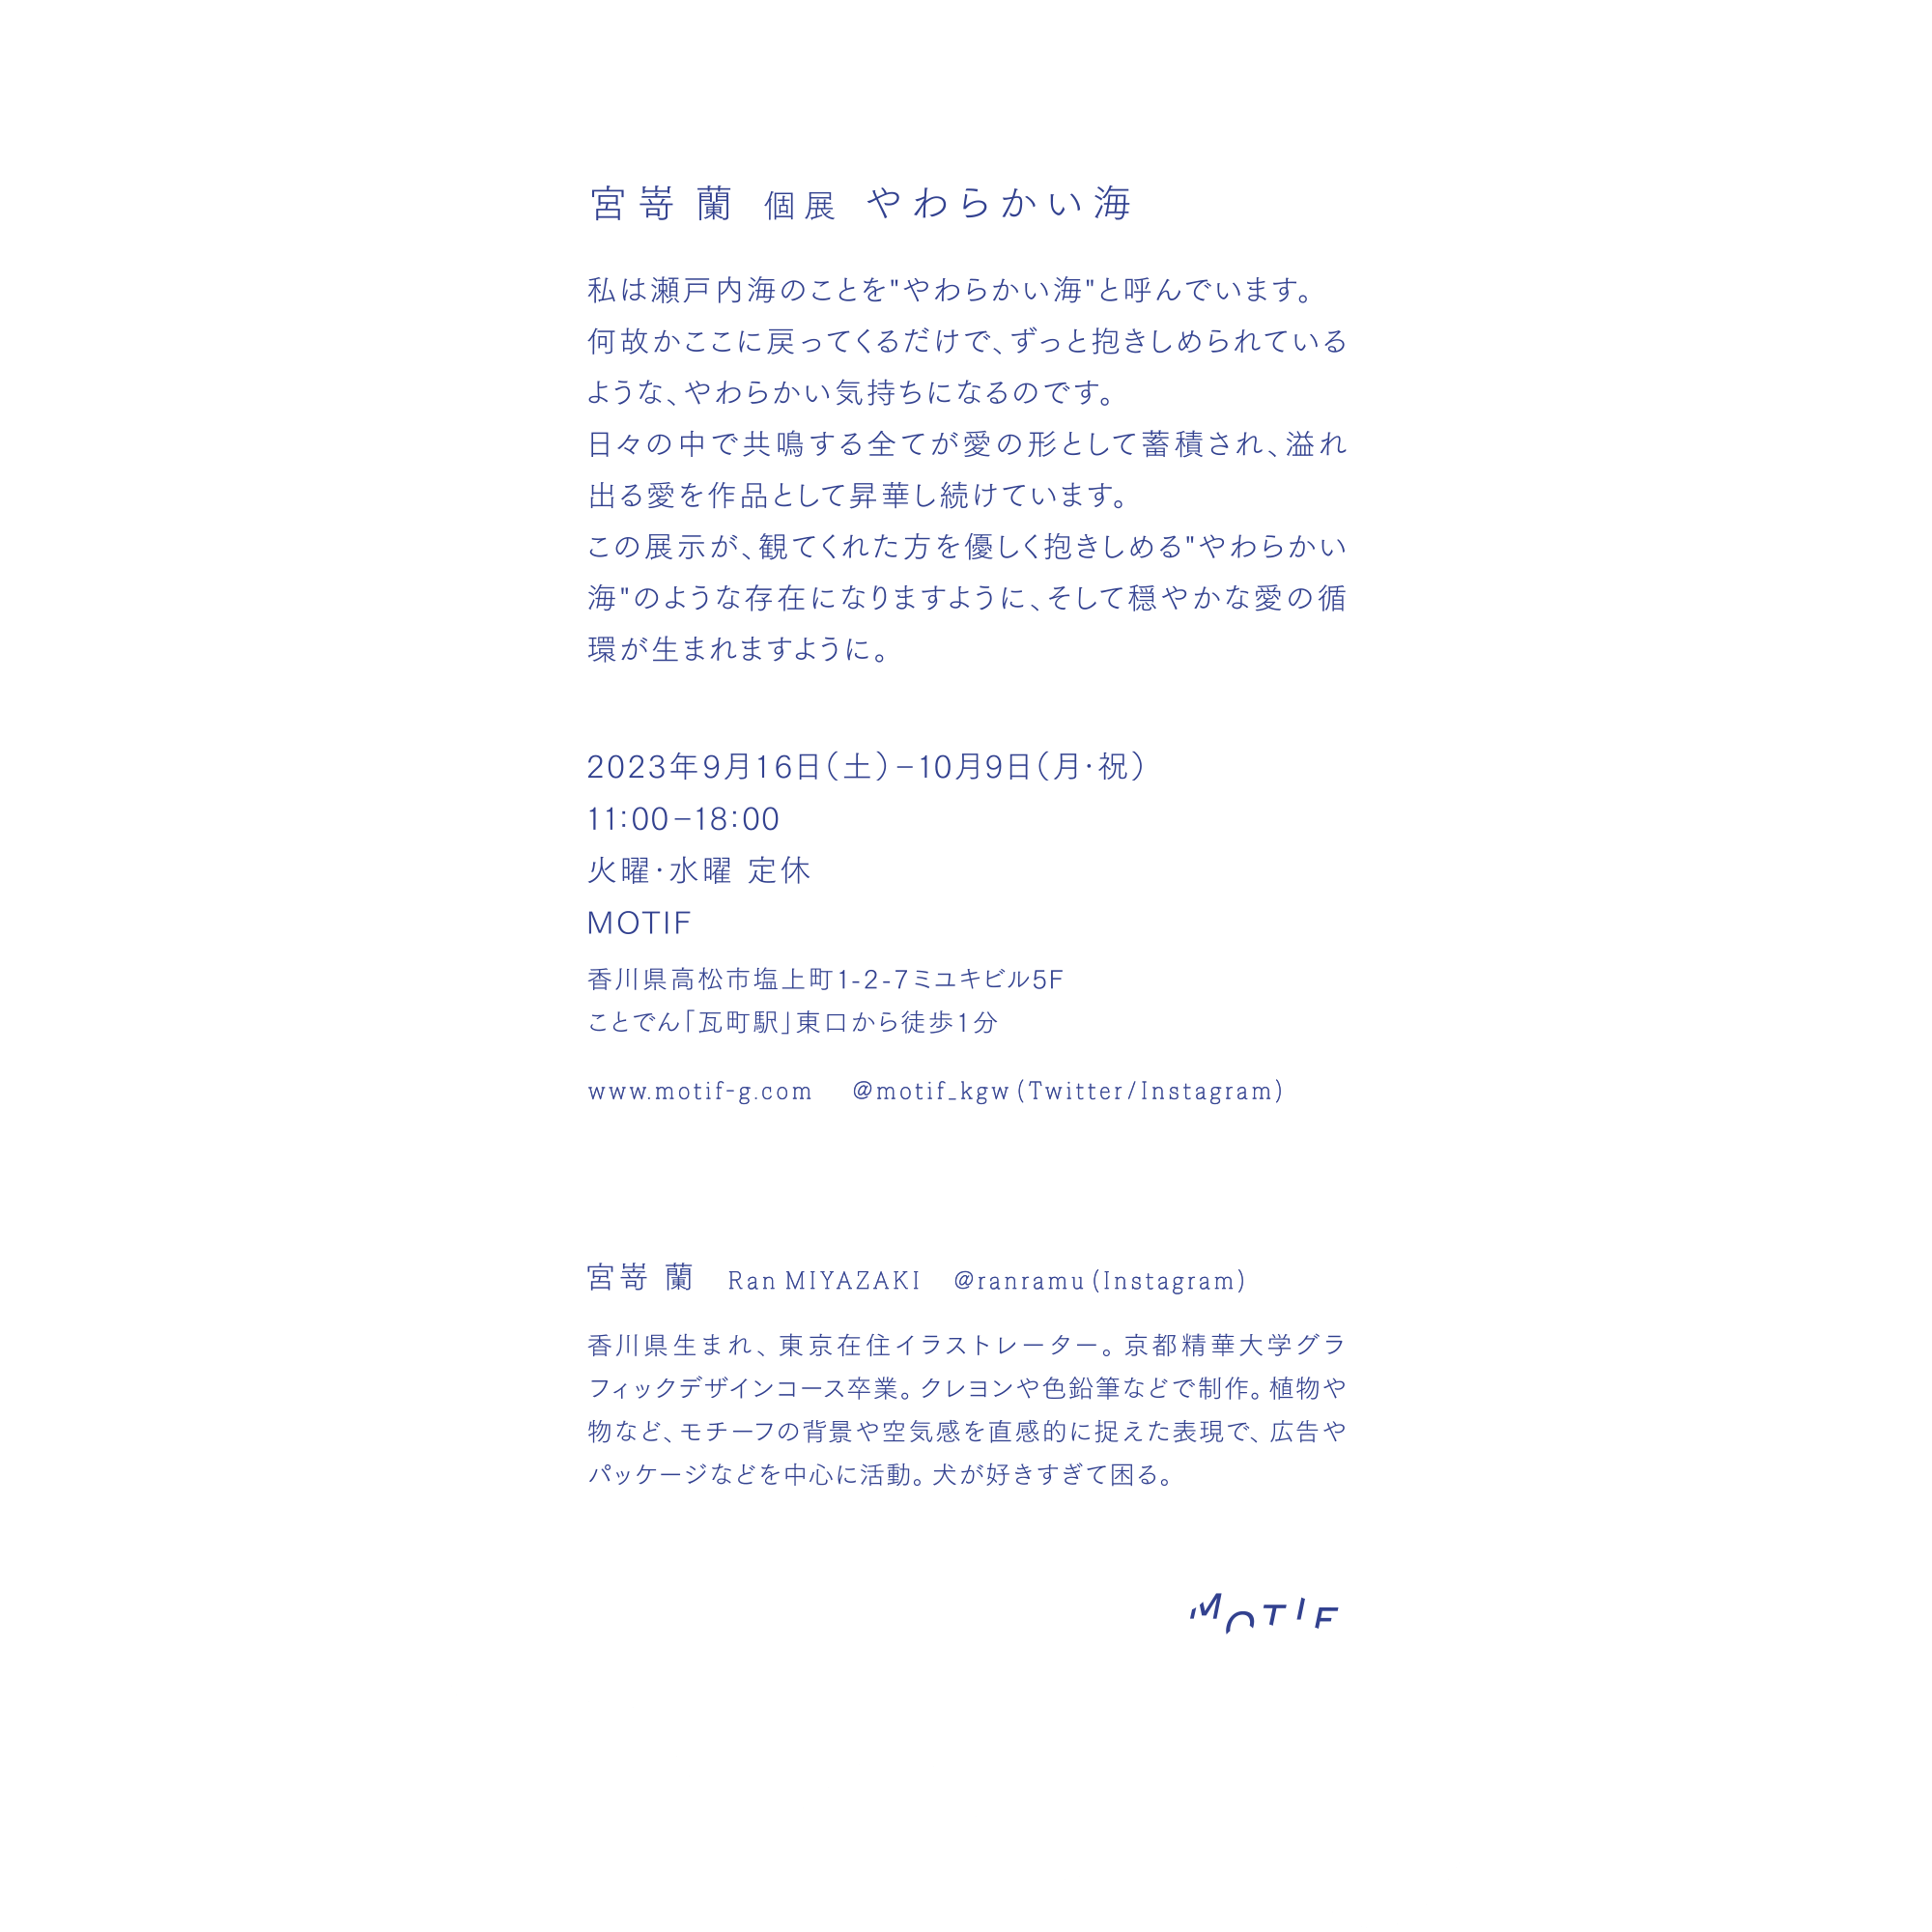 宮嵜 蘭 個展 やわらかい海
私は瀬戸内海のことを"やわらかい海"と呼んでいます。
何故かここに戻ってくるだけで、ずっと抱きしめられている
ような、やわらかい気持ちになるのです。
日々の中で共鳴する全てが愛の形として蓄積され、溢れ
出る愛を作品として昇華し続けています。
この展示が、観てくれた方を優しく抱きしめる"やわらかい
海"のような存在になりますように、そして穏やかな愛の循
環が生まれますように。
2023年9月16日(土)–10月9日(月・祝)
11:00–18:00
火曜・水曜 定休
MOTIF
香川県高松市塩上町1-2-7ミユキビル5F
ことでん「瓦町駅」東口から徒歩1分
www.motif-g.com @motif_kgw (Twitter/Instagram)
宮嵜 蘭 Ran MIYAZAKI @ranramu (Instagram)
香川県生まれ、東京在住イラストレーター。京都精華大学グラ
フィックデザインコース卒業。クレヨンや色鉛筆などで制作。植物や
物など、モチーフの背景や空気感を直感的に捉えた表現で、広告や
パッケージなどを中心に活動。犬が好きすぎて困る。
MOTIF